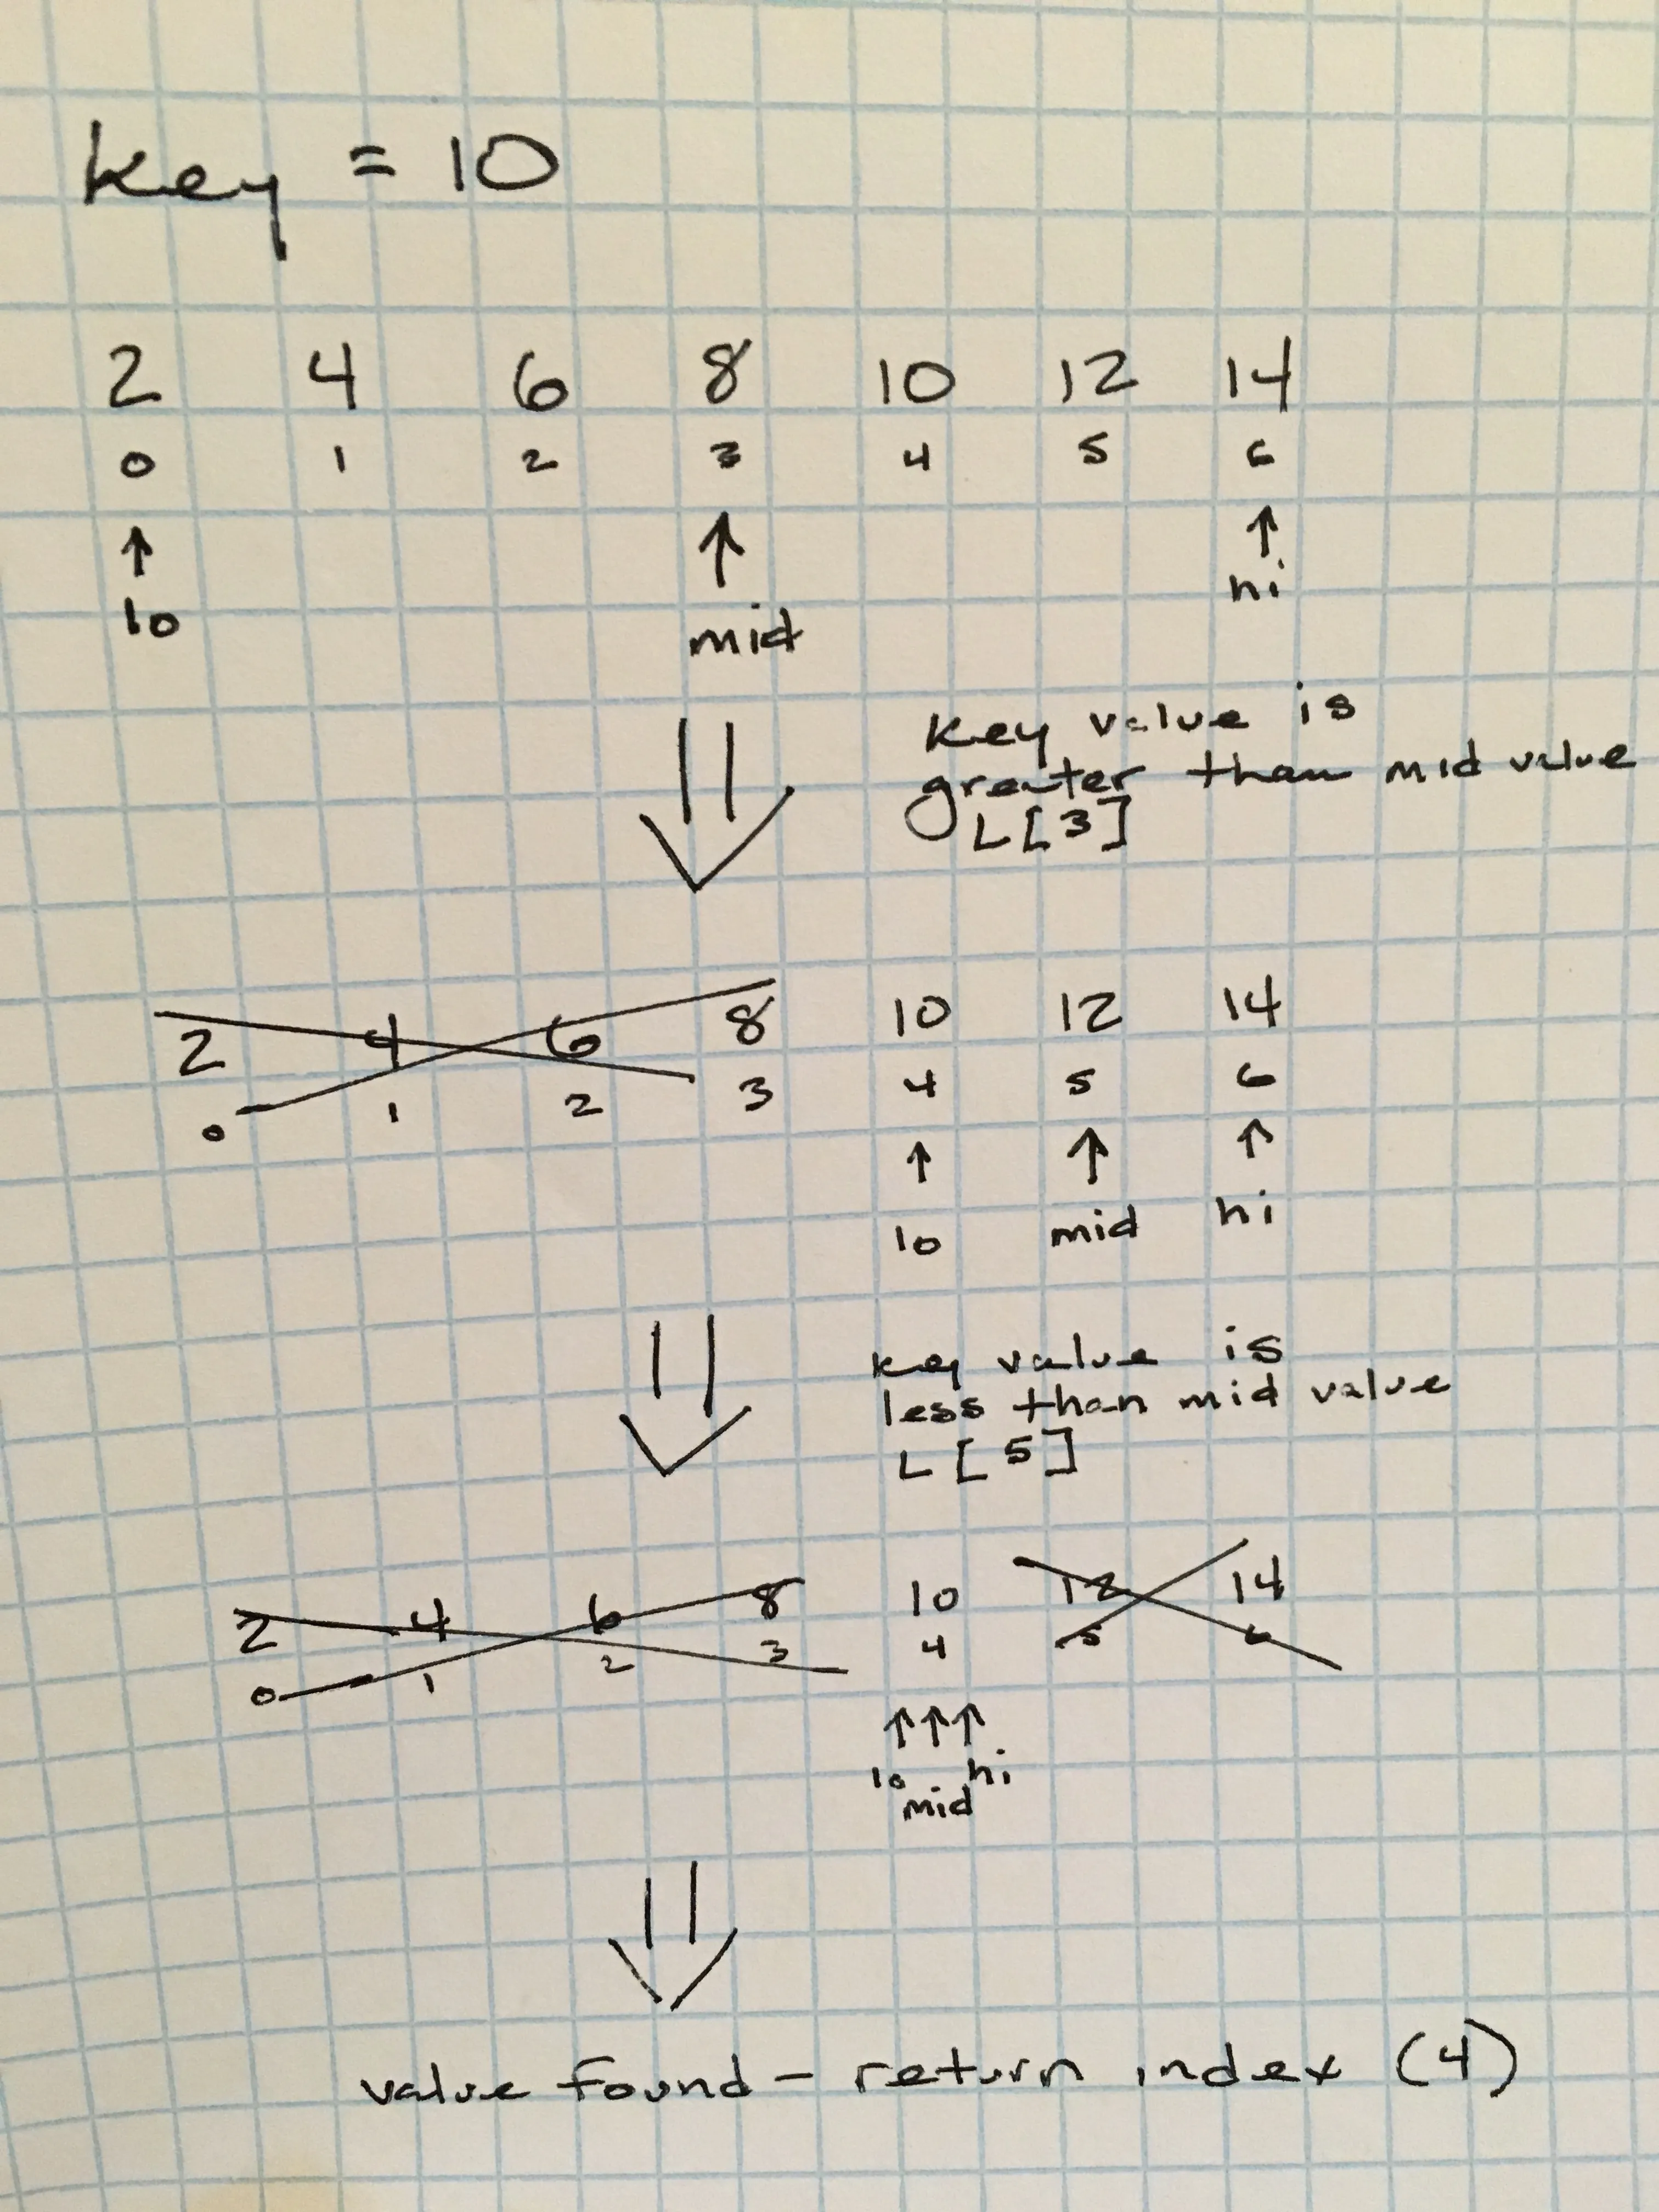 key = 10
2 4 6 8 10 12 14
0 1 2 3 4 5 6
lo mid hi
key value is
greater than mid value
L[3]
2 4 6 8 10 12 14
0 1 2 3 4 5 6
lo mid hi
key value is
less than mid value
L[5]
2 4 6 8 10 12 14
0 1 2 3 4 5 6
lo mid hi
value found - return index (4)